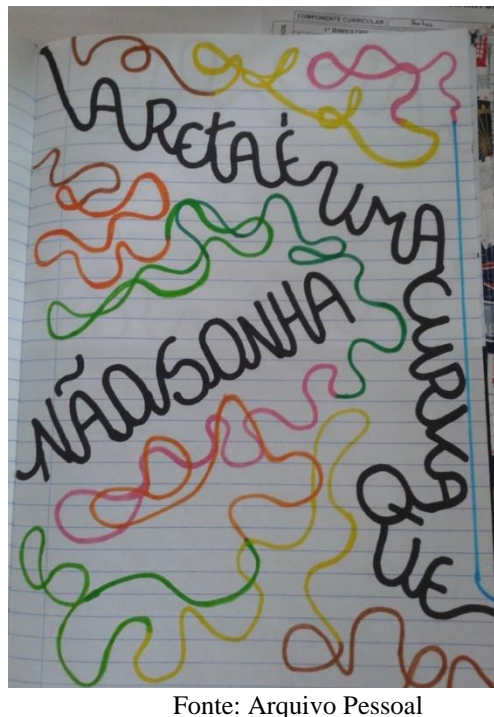 COMPONENTE CURRICULAR
1º BIMESTRE
A RETA É UMA CURVA QUE
NÃO SONHA
Fonte: Arquivo Pessoal